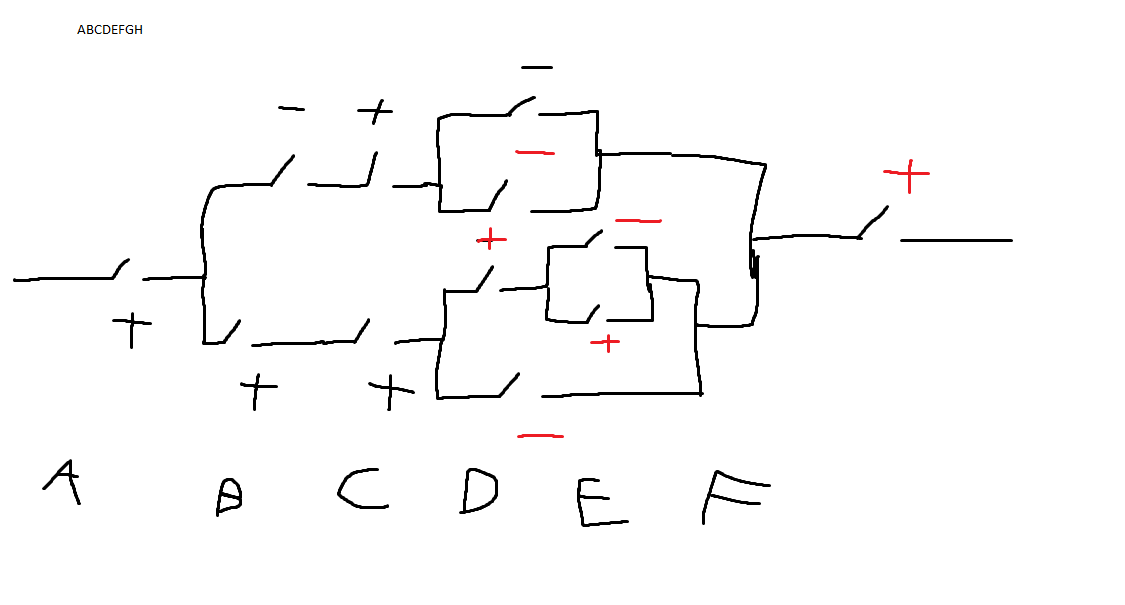 ABCDEFGH
−
− +
−
+
+
−
+
+
+ +
−
A B C D E F